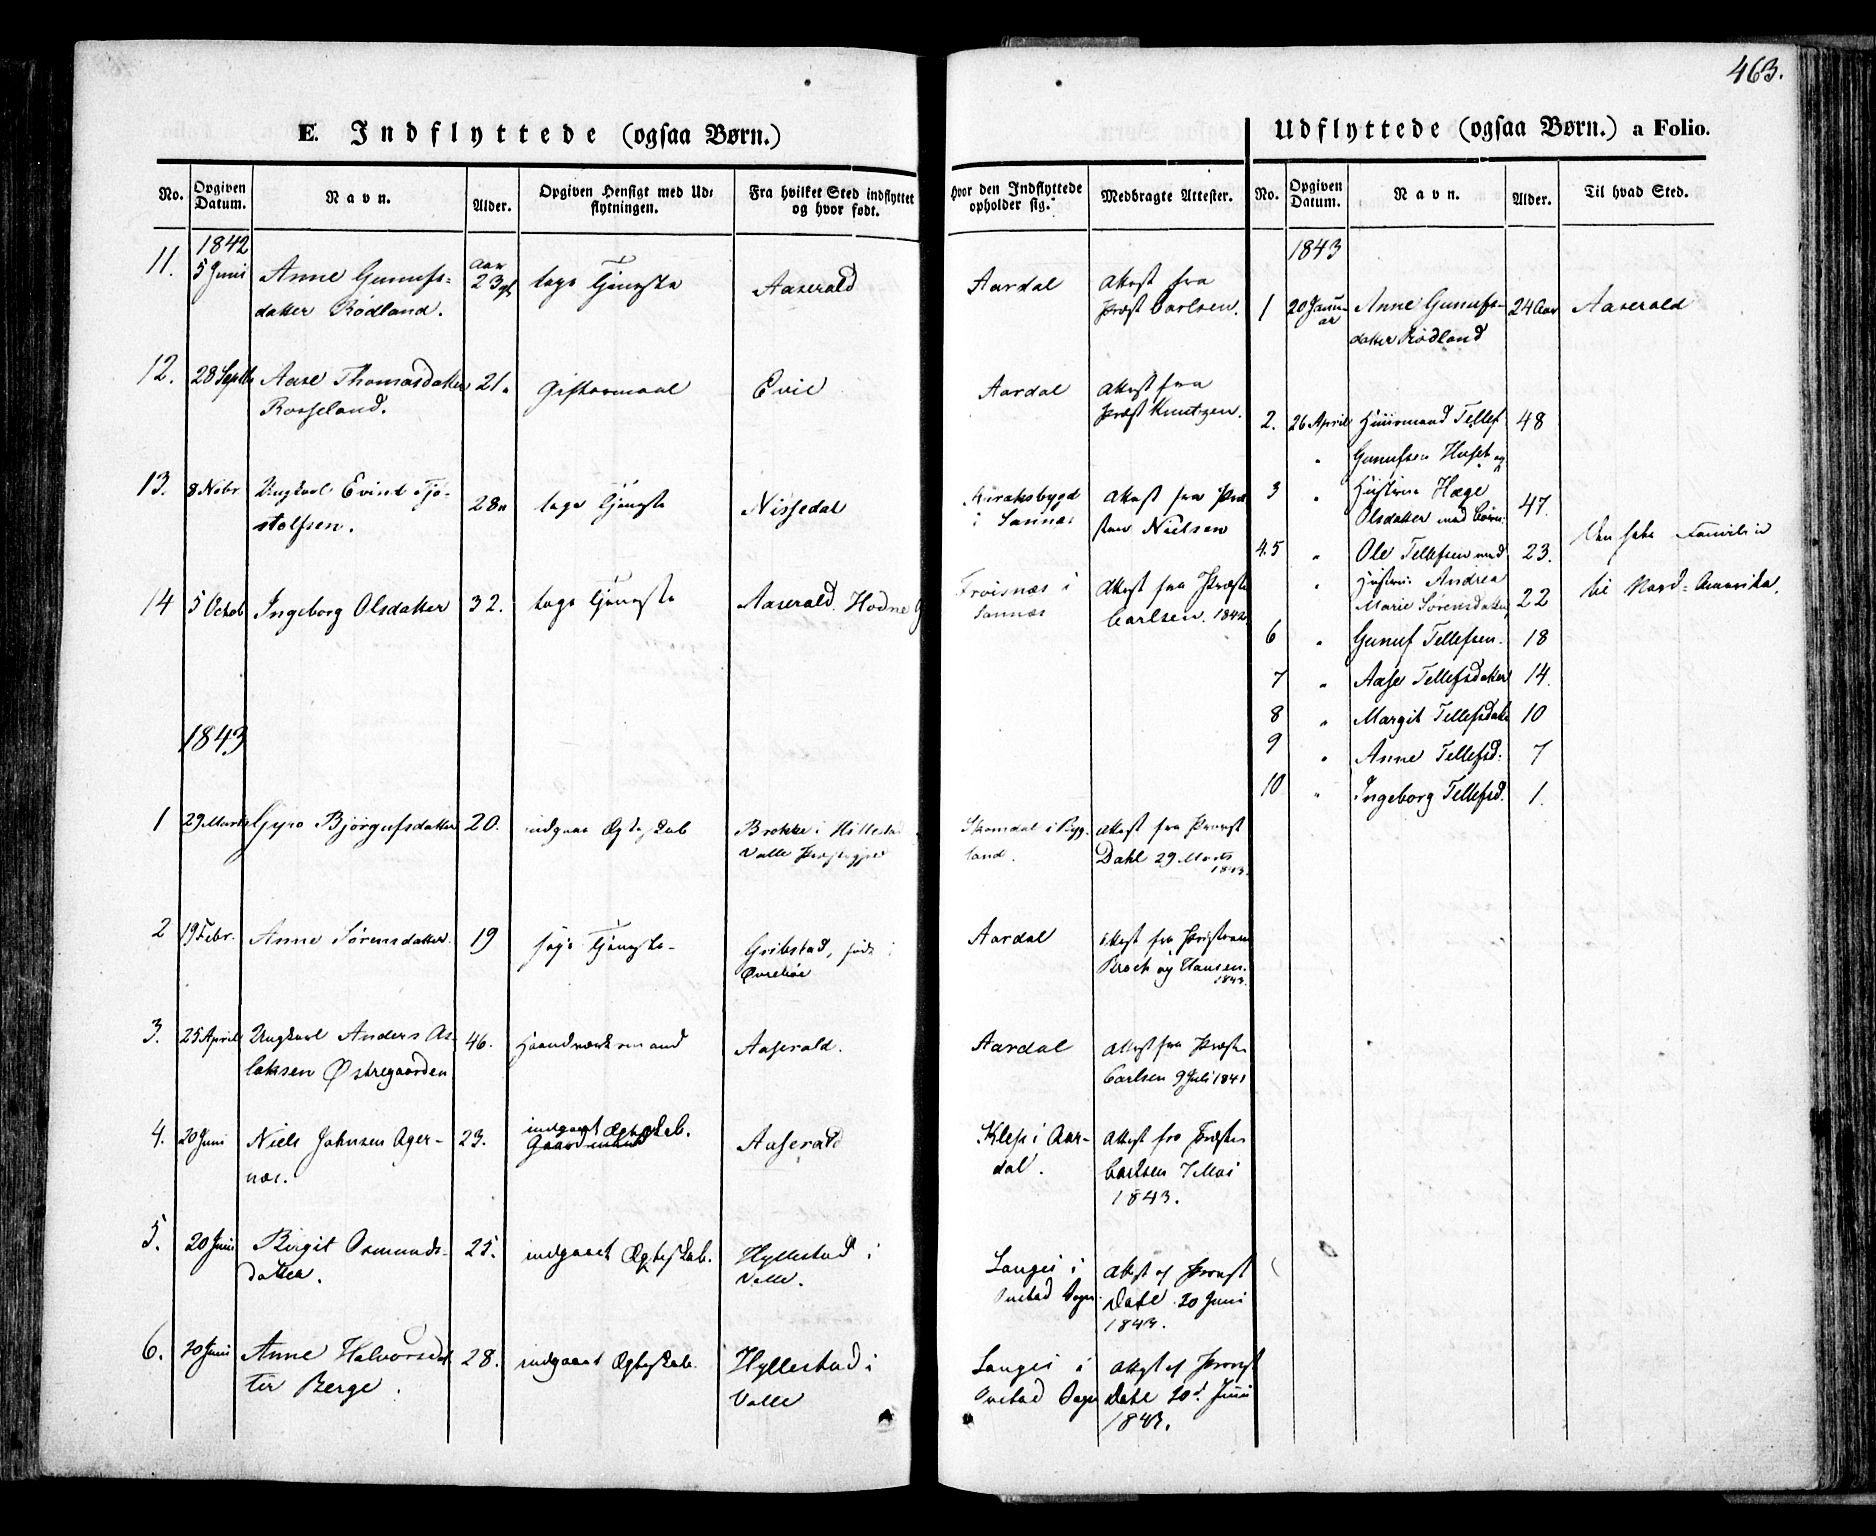 463.
E. Indflyttede (ogsaa Børn.)
Udflyttede (ogsaa Børn.) a Folio.
No. Opgiven Datum. Navn. Alder. Opgiven Hensigt med Udflytningen. Fra hvilket Sted indflyttet og hvor født. Hvor den Indflyttede opholder sig. Medbragte Attester.
1842
11. 5 Juni Anne Gunufs- Aar 23 tage Tjeneste Aaserald Aardal Attest fra
datter Rødland. Præst Carlsen.
12. 28 Septb Aase Thomasdatter 21 Giftermaal Evie Aardal Attest fra
Rosseland. Præst Knutzen.
13. 8 Nobr Ungkarl Evind Tjø- 28 tage Tjeneste Nissedal Attest fra Præ
stolfsen. i Sannæs sten Nielsen
14 5 Octob Ingeborg Olsdatter 32. tage Tjeneste Aaserald. Hodne Frøisnæs i Attest fra Præsten
Sannæs Carlsen. 1842
1843
1 29 Marts Gyro Bjørgufsdatter 20. indgaae Ægteskab Brokke i Hillestad Skomdal i Byg- Attest fra Provst
Valle Præstegjeld land. Dahl 29 Marts
1843.
2 19 Febr. Anne Sørensdatter 19 søge Tjeneste Gribstad, født i Aardal Attest fra Præsterne
Øvrebøe Broch og Hansen.
1843.
3. 25 April Ungkarl Anders As- 46. Haandværksmand Aaserald. Aardal Attest fra Præsten
laksen Østregaarden Carlsen 9 Juli 1841
4. 20 Juni Niels Johnsen Ager- 23. indgaaet Ægteskab. Aaserald Klep i Aar- Attest fra Præsten
næs. Gaardmand dal. Carlsen 7 Mai
1843.
5. 20 Juni Birgit Osmunds- 25. indgaaet Ægteskab. Hyllestad i Langei i Attest af Provst
datter. Valle. Sogn Dahl 20 Juni
1843.
6. 20 Juni Anne Halvorsdat 28. indgaaet Ægteskab. Hyllestad i Langei i Attest af Provst
ter Berge. Valle Sogn Dahl 20d Juni
1843.
No. Opgiven Datum. Navn. Alder. Til hvad Sted.
1843
1 20 Januar Anne Gunufs- 24 Aar Aaserald
datter Rødland
2. 26 April Huusmand Tellef 48
" Gunufsen Huset og
3 " Hustrue Hæge 47.
Olsdatter med Børn
4.5 " Ole Tellefsen med 23. Den hele Familie
" Hustrue Andrea
Marie Sørensdatter 22 til Nord-Amerika.
6 " Gunuf Tellefsen. 18
7 " Aase Tellefsdatter 14.
8 " Margit Tellefsdatt 10
9 " Anne Tellefsd. 7
10 " Ingeborg Tellefsd. 1.